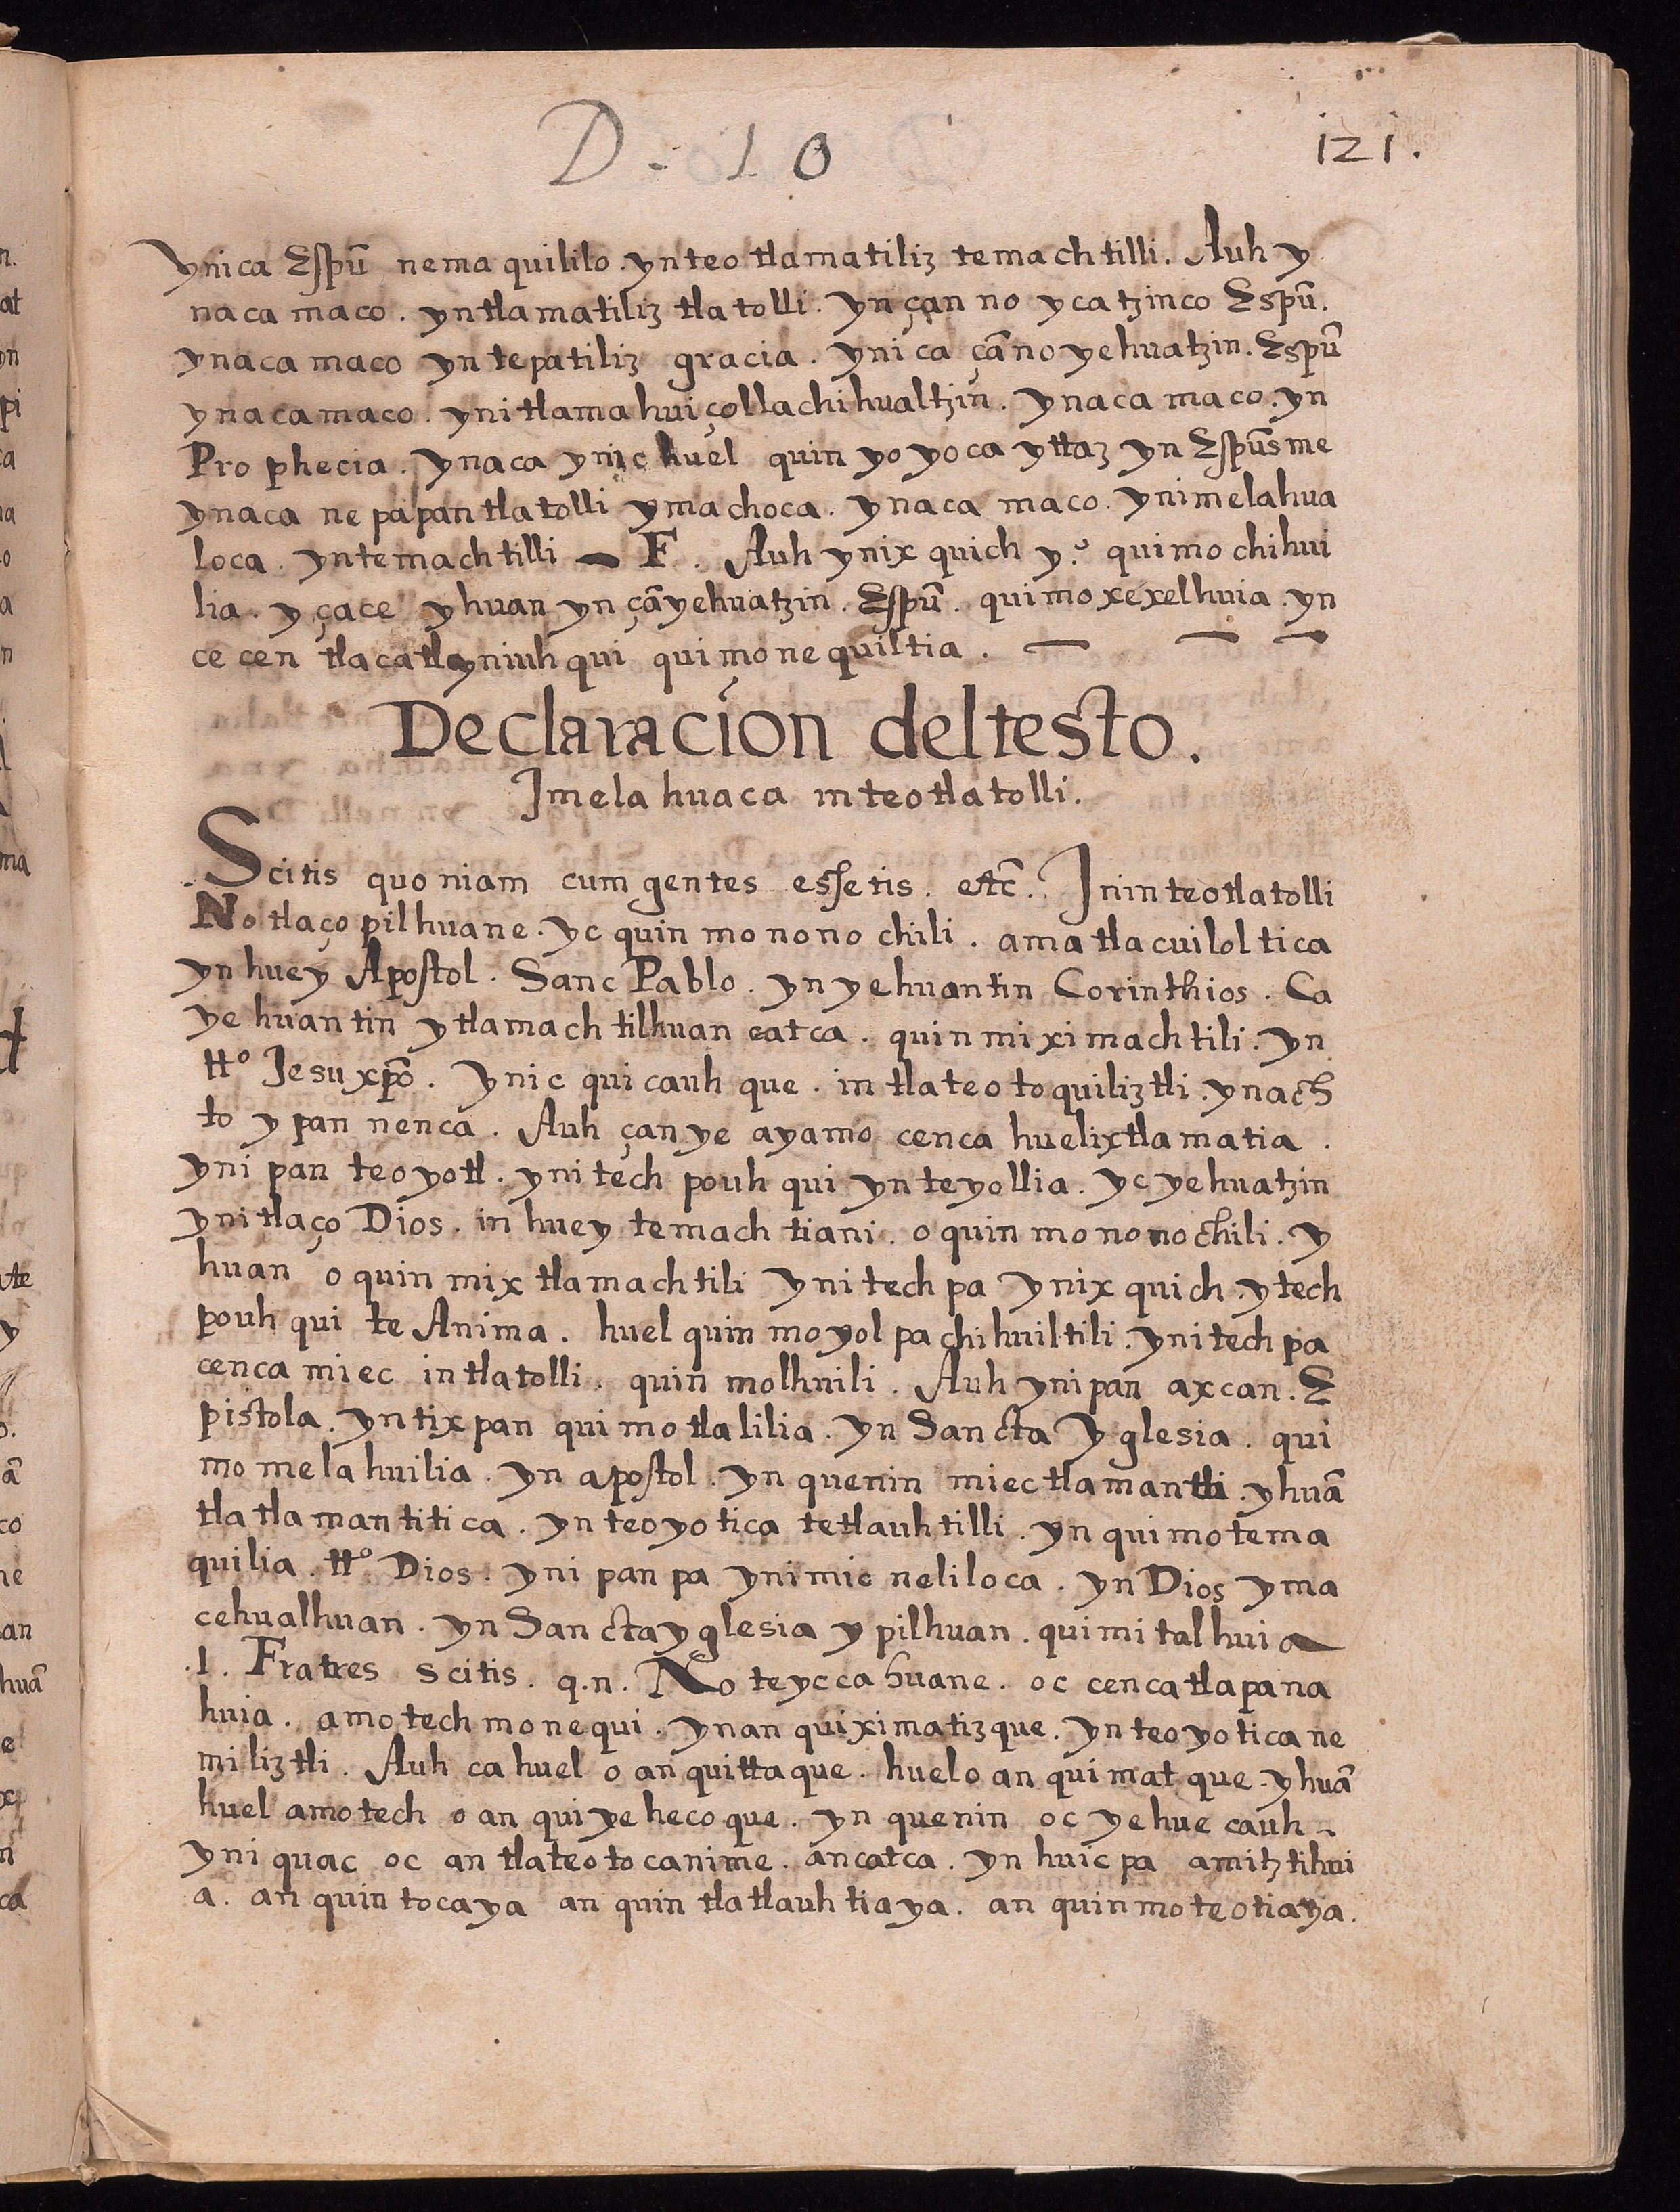 D. 10
121.
ynica Espũ nemaquililo. ynteotlamatiliz temachtilli. Auh y
naca maco. yntlamatiliz tlatolli. yn çan no ycatzinco Espũ.
ynaca maco yntepatiliz gracia. ynica çãno yehuatzin. Espũ
ynaca maco. ynitlamahuiçollachihualtzin. ynaca maco. yn
Prophecia. ynaca ynic huel quin yoyoca yttaz yn Espũsme
ynaca nepapantlatolli ymachoca. ynaca maco. ynimelahua
loca. yntemachtilli — F. Auh ynixquich y.º quimochihui
lia. yçace yhuan yn çãyehuatzin. Espũ. quimoxexelhuia. yn
cecen tlacatl yniuhqui quimonequiltia. — — —
Declaracion deltesto.
Imelahuaca inteotlatolli.
Scitis quoniam cum gentes essetis. etc̃. Inin teotlatolli
Notlaçopilhuane. yc quinmononochili. amatlacuiloltica
ynhuey Apostol. Sanc Pablo. ynyehuantin Corinthios. Ca
yehuantin ytlamachtilhuan catca. quinmiximachtili. yn
ttº Jesu xp̃o. ynic quicauhque. in tlateotoquiliztli. ynach
to ypan nenca. Auh çanye ayamo cenca huelixtlamatia.
ynipan teoyotl. ynitech pouhqui ynteyollia. yc yehuatzin
ynitlaço Dios. in huey temachtiani. oquinmononochili. y
huan oquinmixtlamachtili ynitechpa ynixquich. ytech
pouhqui teAnima. huel quinmoyolpachihuiltili. ynitechpa
cenca miec intlatolli. quinmolhuili. Auh ynipan axcan. E
pistola. yntixpan quimotlalilia. yn Sancta Yglesia. qui
momelahuilia. yn apostol. yn quenin miectlamantli. yhuã
tlatlamantitica. yn teoyotica tetlauhtilli. yn quimotema
quilia. ttº Dios. ynipanpa ynimicneliloca. yn Dios yma
cehualhuan. yn Sancta yglesia ypilhuan. quimitalhuia
.1. Fratres scitis. q.n. Noteyccahuane. oc cencatlapana
huia. amotechmonequi. ynanquiximatizque. ynteoyoticane
miliztli. Auh ca huel oanquittaque. huel oanquimatque. yhuã
huel amotech oanquiyehecoque. yn quenin oc yehuecauh
yniquac oc antlateotocanime. ancatca. yn huicpa amitztihui
a. anquintocaya anquintlatlauhtiaya. anquinmoteotiaya.